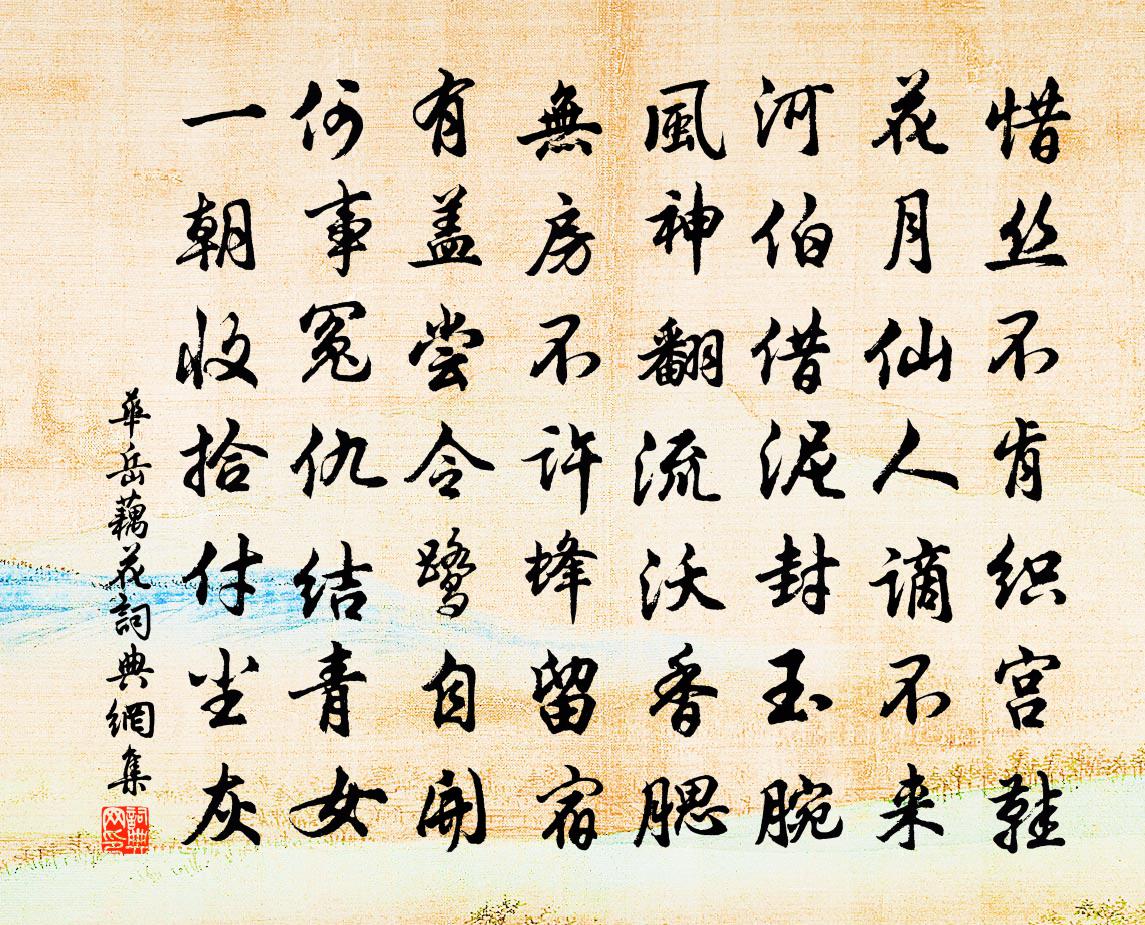 惜丝不肯织宫鞋
花月仙人谪不来
河伯借泥封玉腕
風神翻流沃香腮
無房不許蜂留宿
有盖尝令鹭自開
何事冤仇结青女
一朝收拾付尘灰
華岳藕花詞典網集
詞典網印